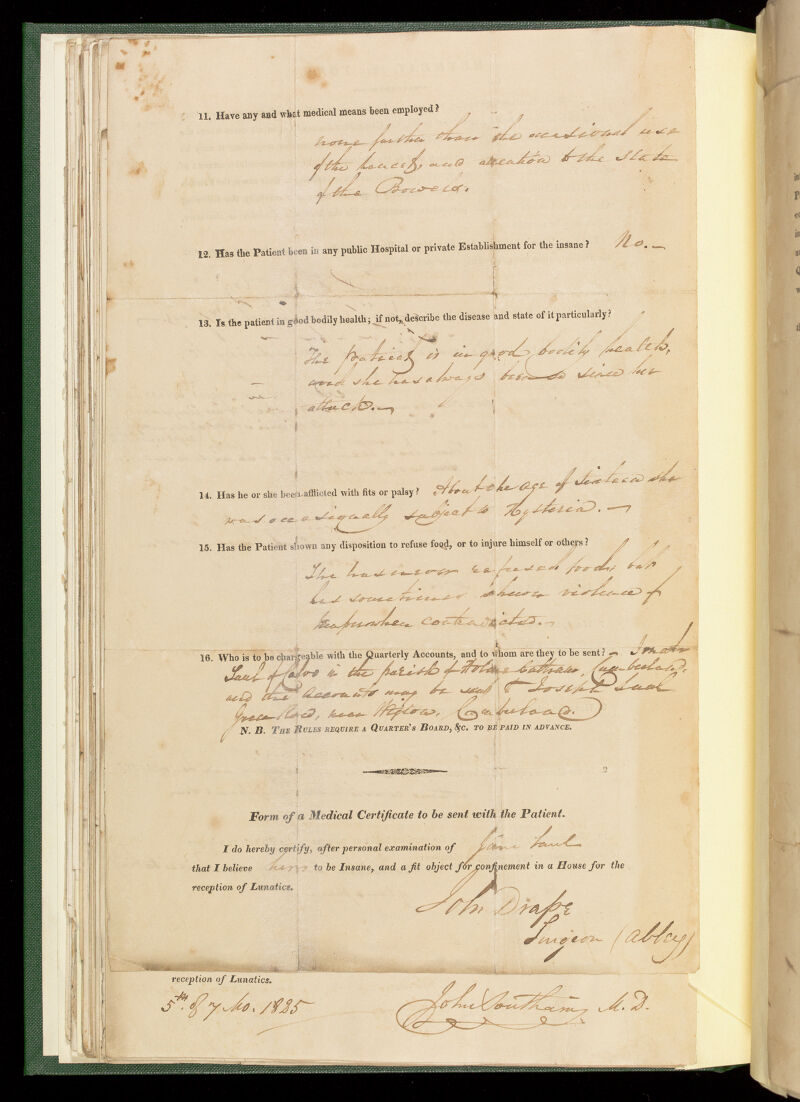 11. Have any and what medical means been employed?
none further than the occasional use
of the lancet, and attention to the state
of the Bowels.
12. Has the Patient been in any public Hospital or private Establishment for the insane? No. —
13. Is the patient in good bodily health; if not, describe the disease and state of it particularly?
The patient is in good bodily health,
and she has always been so since her
attack. —
14. Has he or she been afflicted with fits or palsy? About the age of Sixteen she
was occasionally subject to Hysteria. —
15. Has the Patient shown any disposition to refuse food, or to injure himself or others?
She has never refused food, but
has sometimes shewn violence of
temper when contradicted. —
16. Who is to be chargeable with the Quarterly Accounts, and to whom are they to be sent? — Jonathn
Saul of in the parish of Holme Cultram, Cumberland.
and the Accounts may be sent to Joseph Saul
Green Row, near Wigton, Cumberland.
N. B. THE RULES REQUIRE A QUARTER'S BOARD, &C. TO BE PAID IN ADVANCE.
Form of a Medical Certificate to be sent with the Patient.
I do hereby certify, after personal examination of Jane Saul
that I believe her to be Insane, and a fit object for confinement in a House for the
reception of Lunatics.
John Drape
Surgeon (Abbey)
reception of Lunatics.
5th. of 7 Mo. 1825
John Southam, M.D.